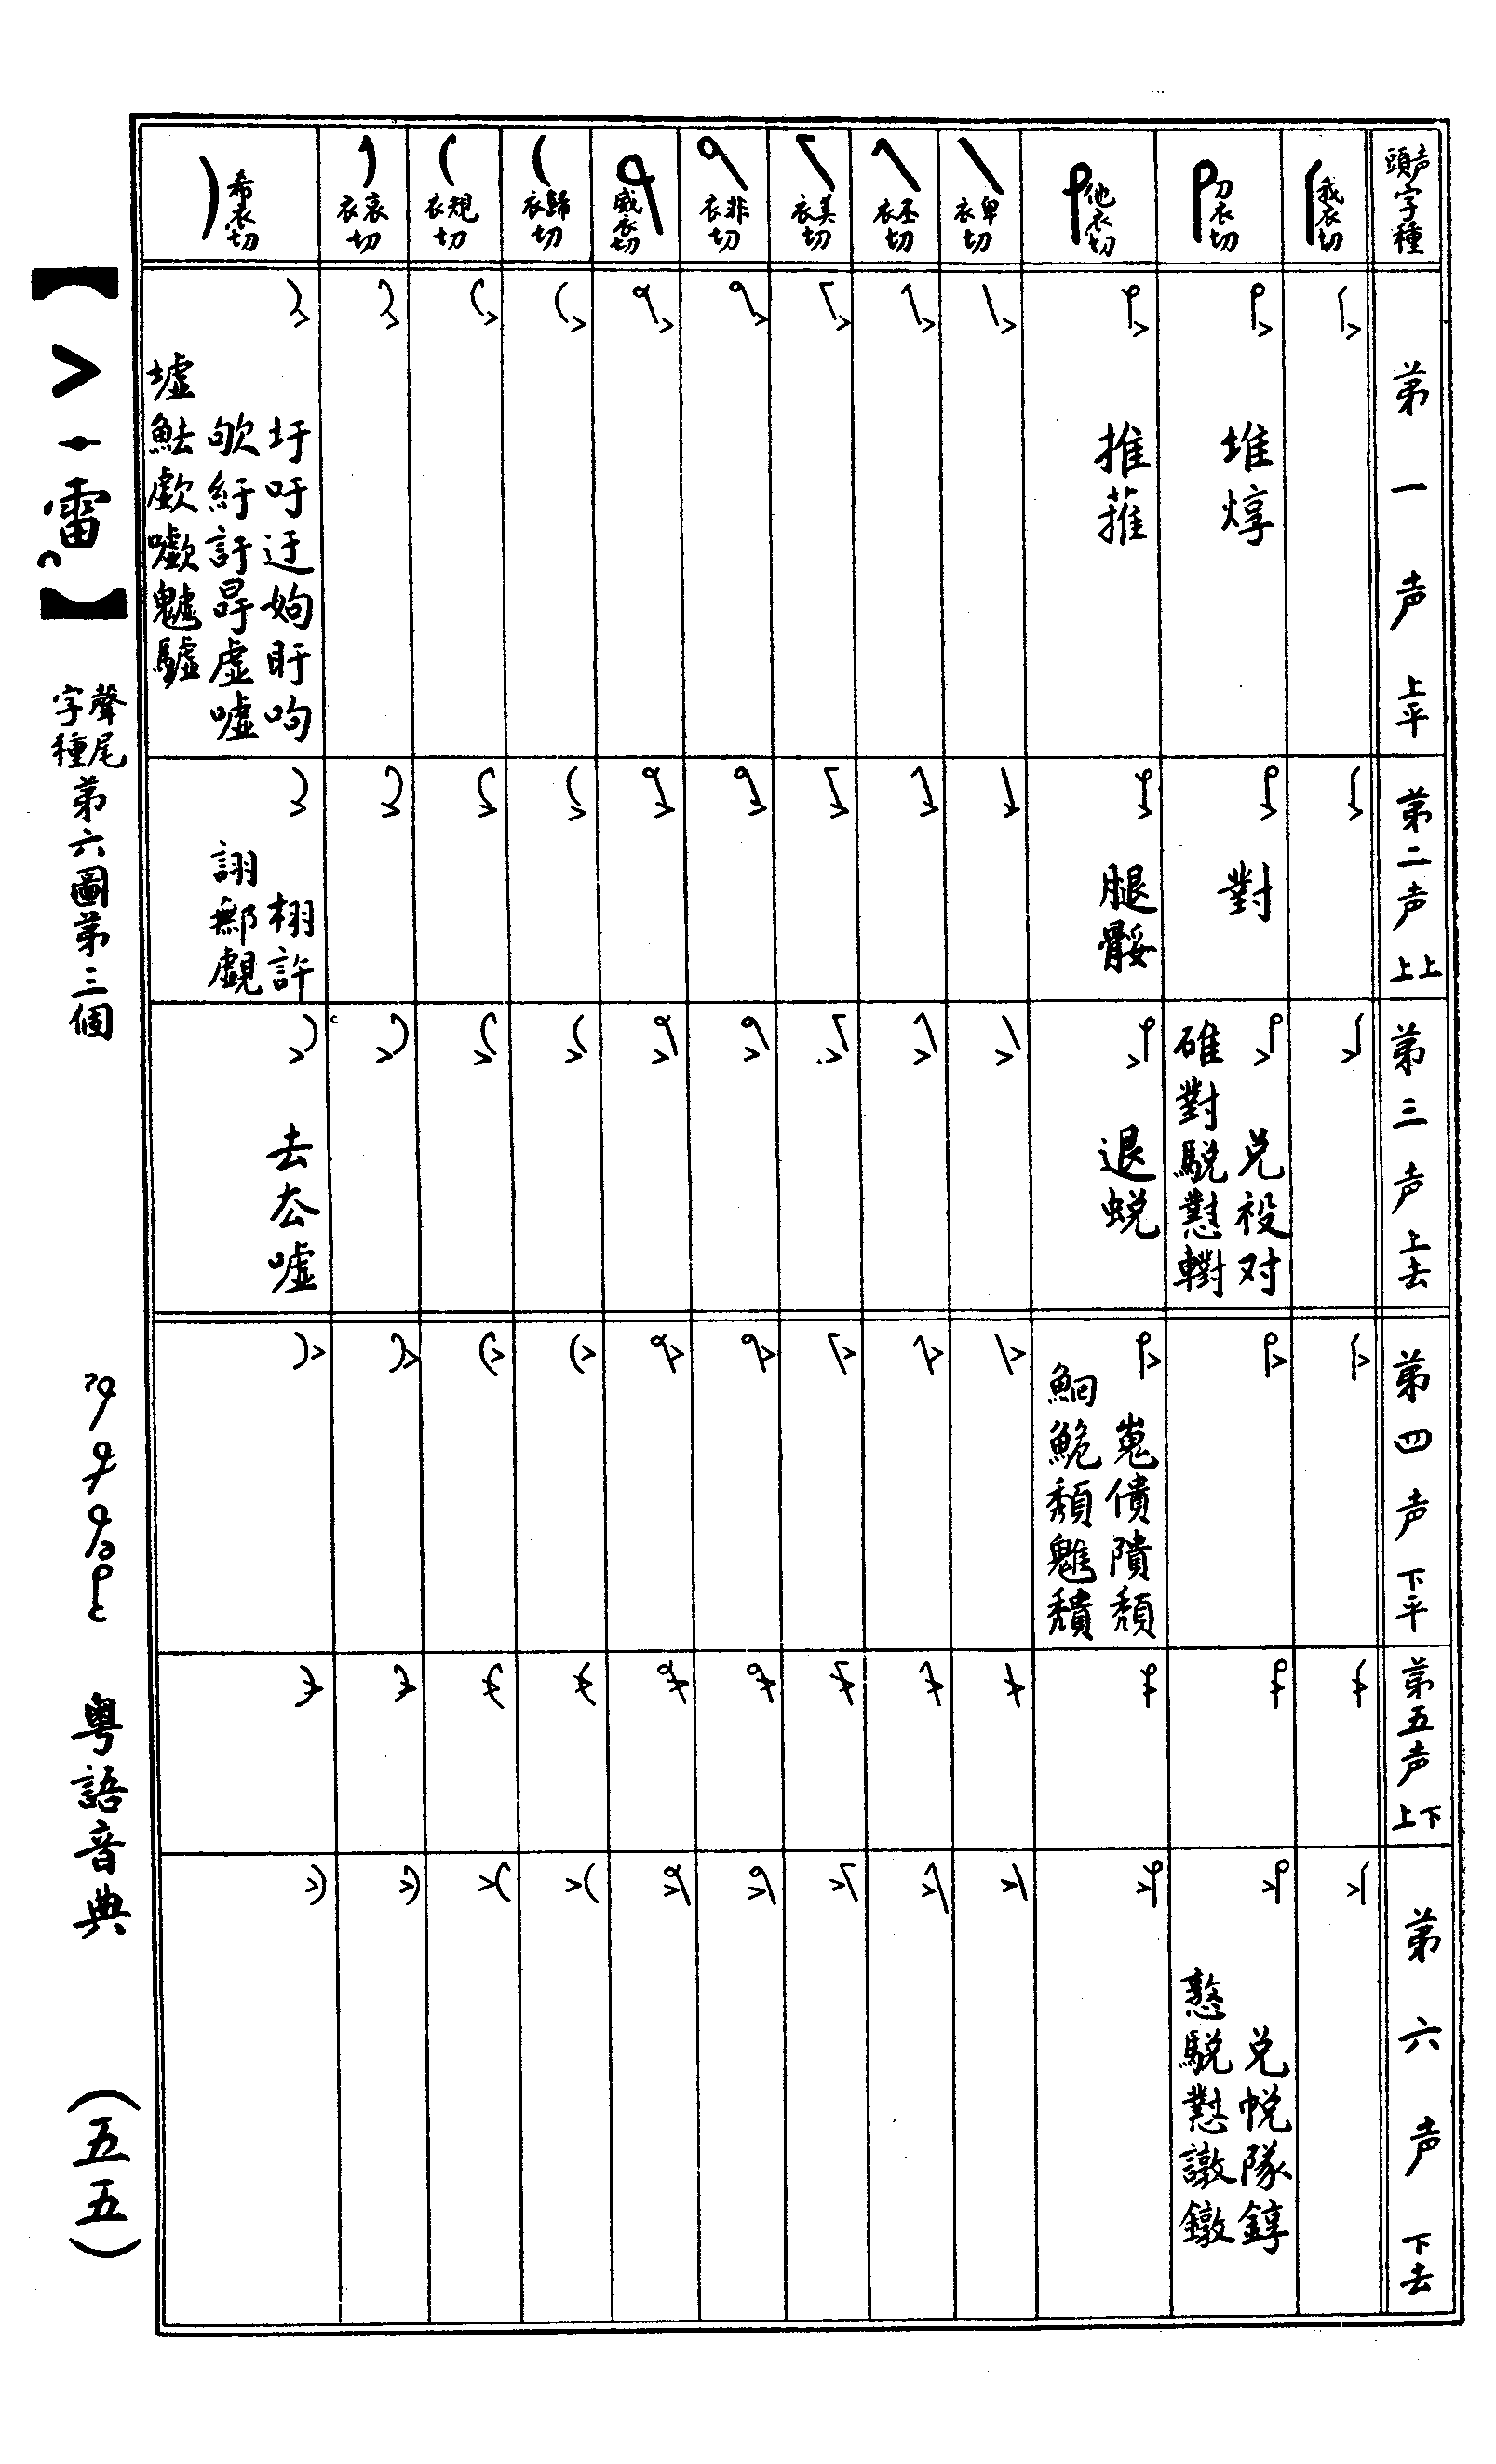 声頭字種
第一声 上平
第二声 上上
第三声 上去
第四声 下平
第五声 下上
第六声 下去
我衣切
刀衣切
堆焞
對
兑祋对
碓對駾懟轛
兑帨隊錞
憝駾懟譈鐓
他衣切
推蓷
腿骽
退蜕
嵬僓隤頹
鮰鮠頹魋穨
卑衣切
丕衣切
美衣切
非衣切
威衣切
歸衣切
規衣切
衰衣切
希衣切
圩吁迂姁盱呴
欨紆訏㝵虚嘘
墟魼歔嘘魖驉
栩許
詡鄦覷
去厺嘘
【＞・雷】
聲尾字種第六圖第三個
粤語音典
（五五）